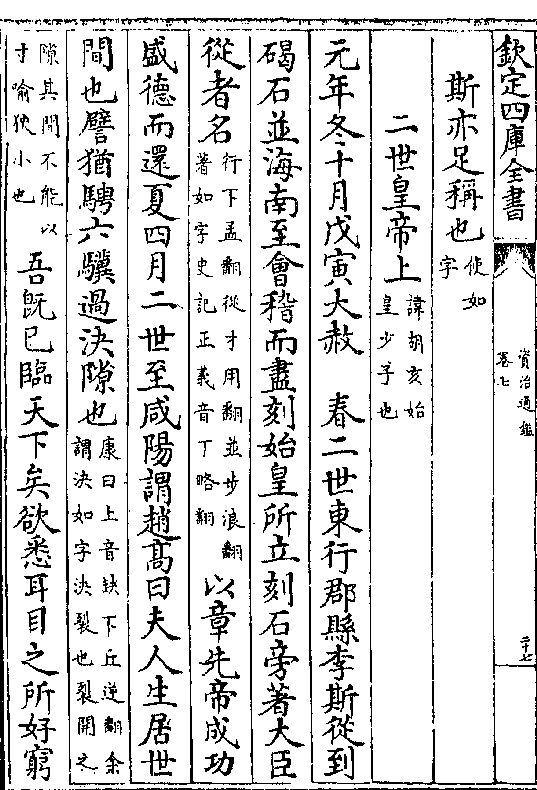 欽定四庫全書
資治通鑑
卷七
二十七
斯亦足稱也使如
字
二世皇帝上諱胡亥始
皇少子也
元年冬十月戊寅大赦 春二世東行郡縣李斯從到
碣石並海南至會稽而盡刻始皇所立刻石旁著大臣
從者名行下孟翻從才用翻並步浪翻
著如字史記正義音丁略翻以章先帝成功
盛德而還夏四月二世至咸陽謂趙髙曰夫人生居世
間也譬猶騁六驥過決隙也康曰上音缺下丘逆翻余
謂決如字決裂也裂開之
隙其間不能以
寸喻狹小也吾既已臨天下矣欲悉耳目之所好窮